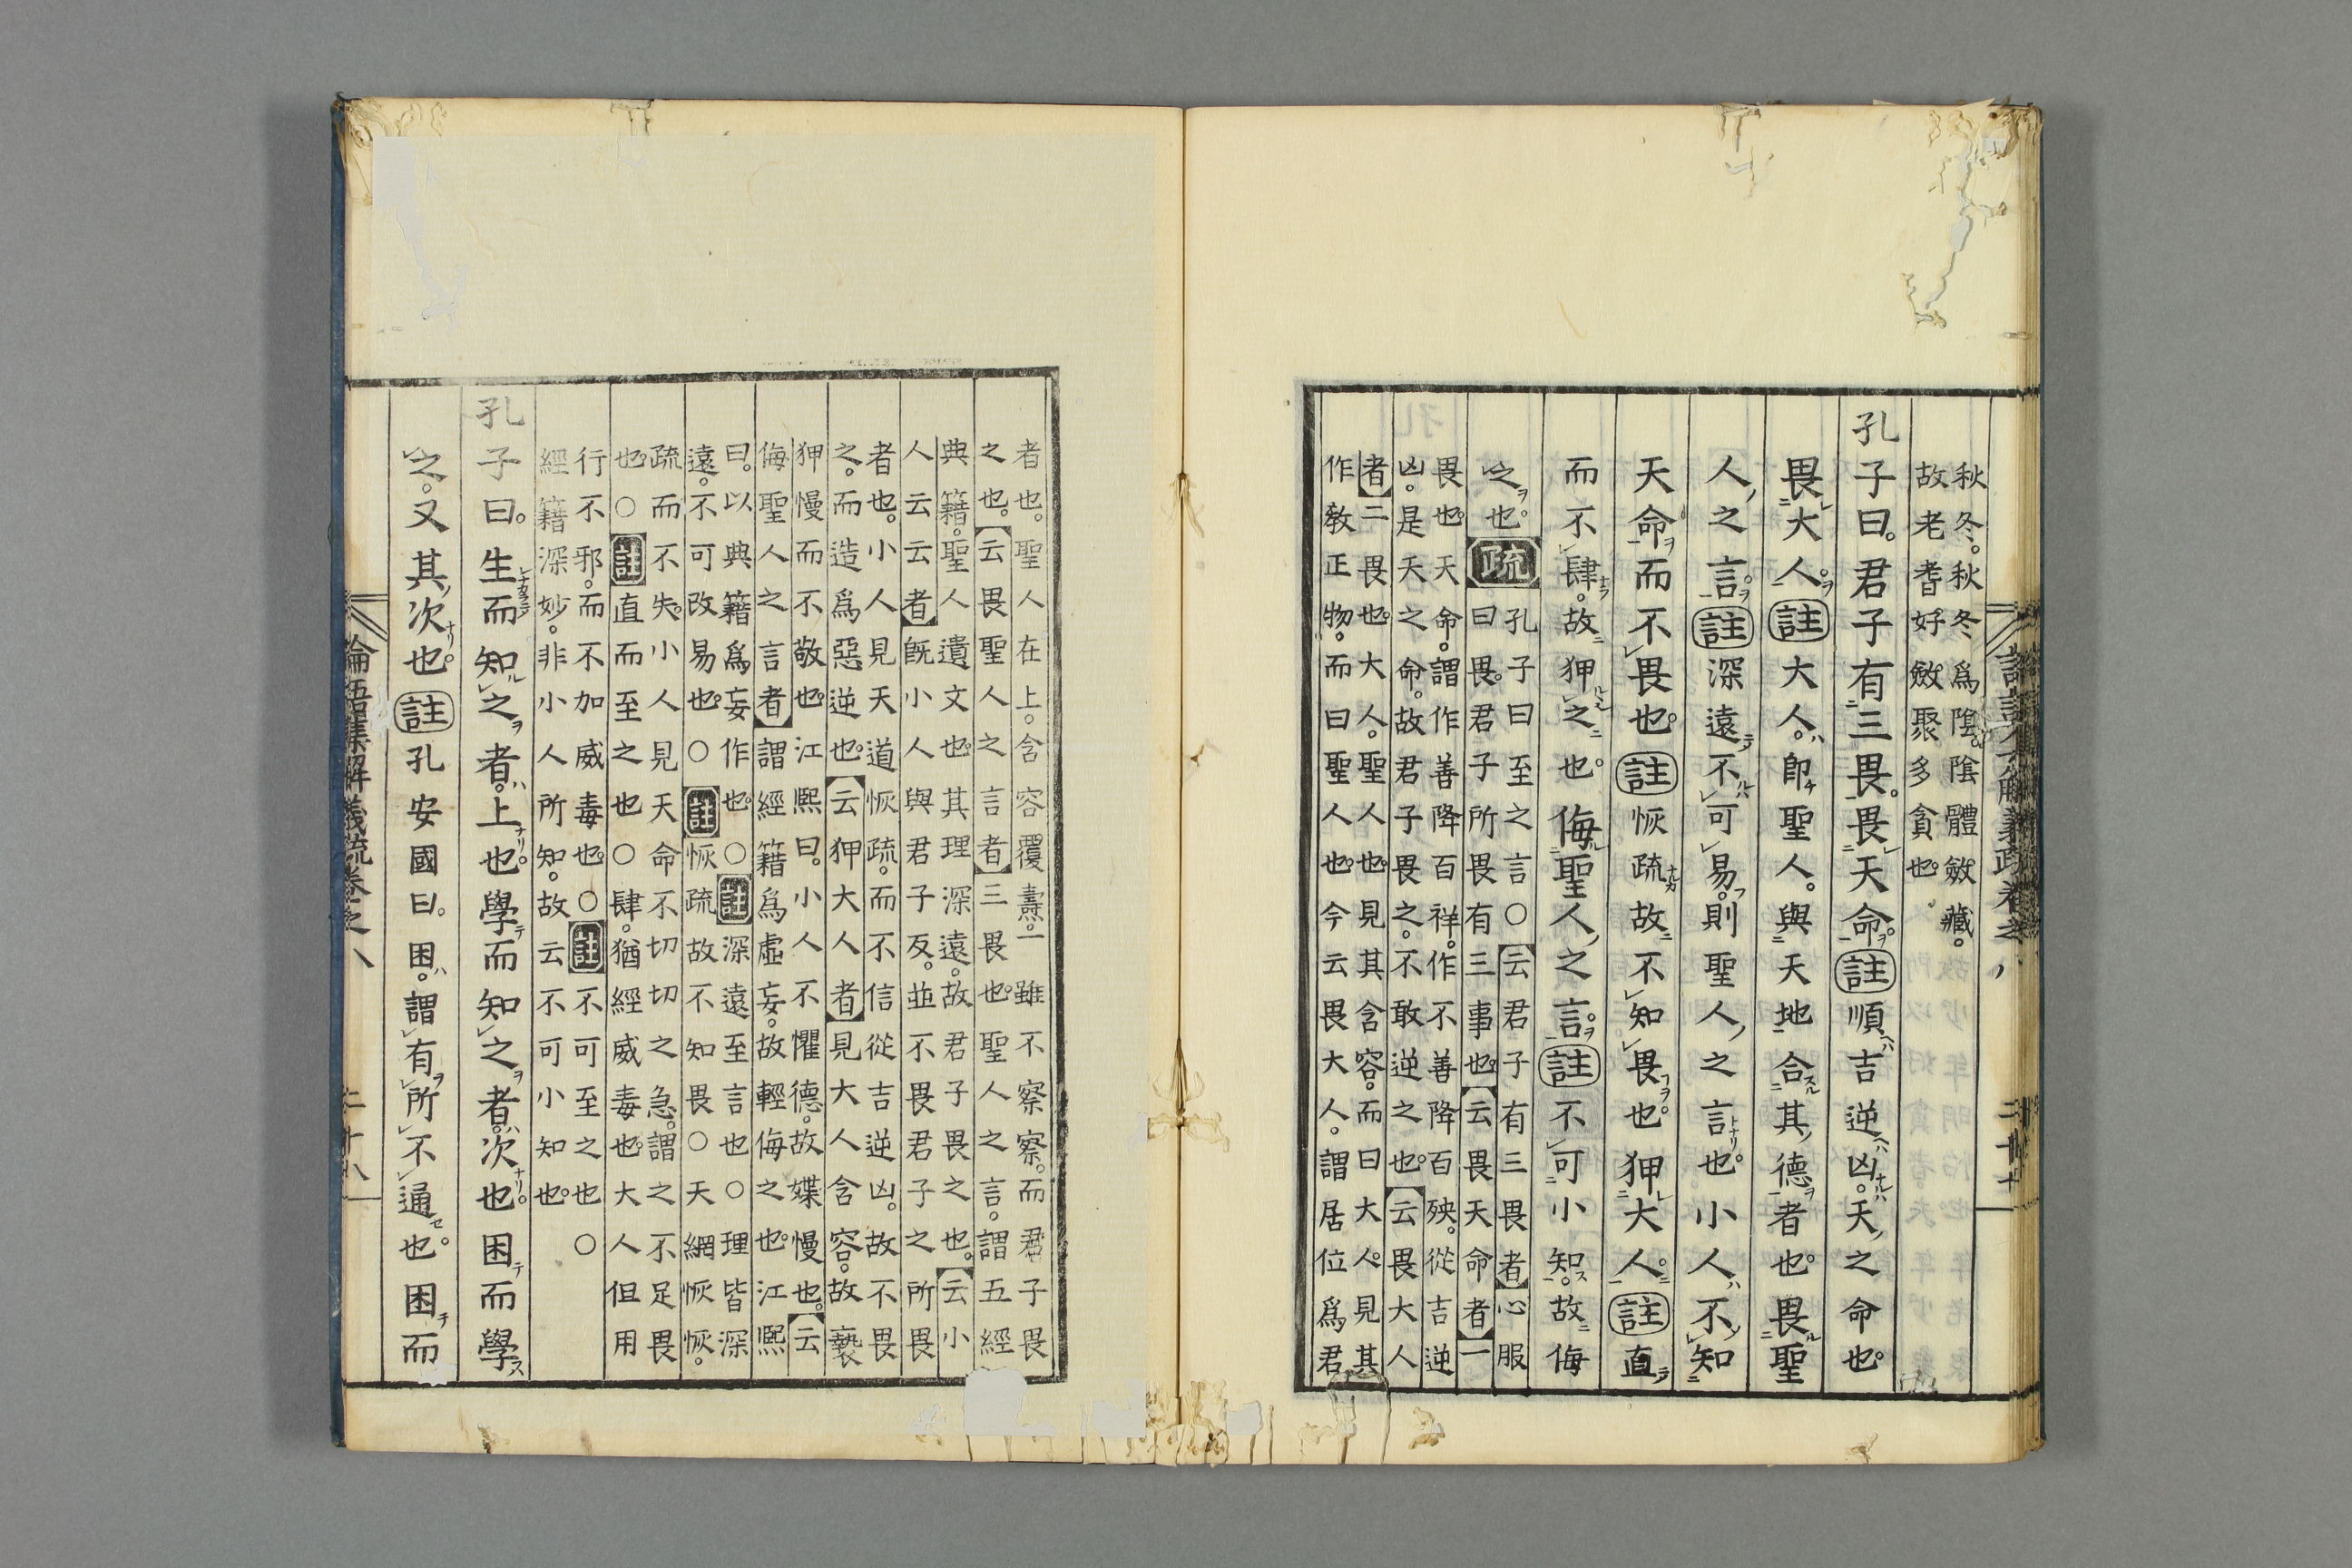 秋冬。秋冬爲陰。陰體斂藏。
故老耆好斂聚多貪也。
孔子曰。君子有三畏。畏天命。註順吉逆凶。天之命也。
畏大人。註大人。卽聖人。與天地合其德者也。畏聖
人之言。註深遠不可易。則聖人之言也。小人不知
天命而不畏也。註恢疏故不知畏也。狎大人。註直
而不肆。故狎之也。侮聖人之言。註不可小知。故侮
之也。疏
孔子曰至之言○云君子有三畏者心服
曰畏。君子所畏有三事也。云畏天命者一
畏也。天命。謂作善降百祥。作不善降百殃。從吉逆
凶。是天之命。故君子畏之。不敢逆之也。云畏大人
者二畏也。大人。聖人也。見其含容。而曰大人。見其
作敎正物。而曰聖人也。今云畏大人。謂居位爲君
者也。聖人在上。含容覆燾。一雖不察察。而君子畏
之也。云畏聖人之言者三畏也。聖人之言。謂五經
典籍。聖人遺文也。其理深遠。故君子畏之也。云小
人云云者旣小人與君子反。並不畏君子之所畏
者也。小人見天道恢疏。而不信從吉逆凶。故不畏
之。而造爲惡逆也。云狎大人者見大人含容。故褻
狎慢而不敬也。江熙曰。小人不懼德。故媟慢也。云
侮聖人之言者謂經籍爲虛妄。故輕侮之也。江熙
曰。以典籍爲妄作也。○註深遠至言也○理皆深
遠。不可改易也。○註恢疏故不知畏○天網恢恢。
疏而不失。小人見天命不切切之急。謂之不足畏
也。○註直而至之也○肆。猶經威毒也。大人但用
行不邪。而不加威毒也。○註不可至之也○
經籍深妙。非小人所知。故云不可小知也。
孔子曰。生而知之者。上也。學而知之者。次也。困而學
之。又其次也。註孔安國曰。困。謂有所不通也。困而
論語集解義疏卷之八
二十八